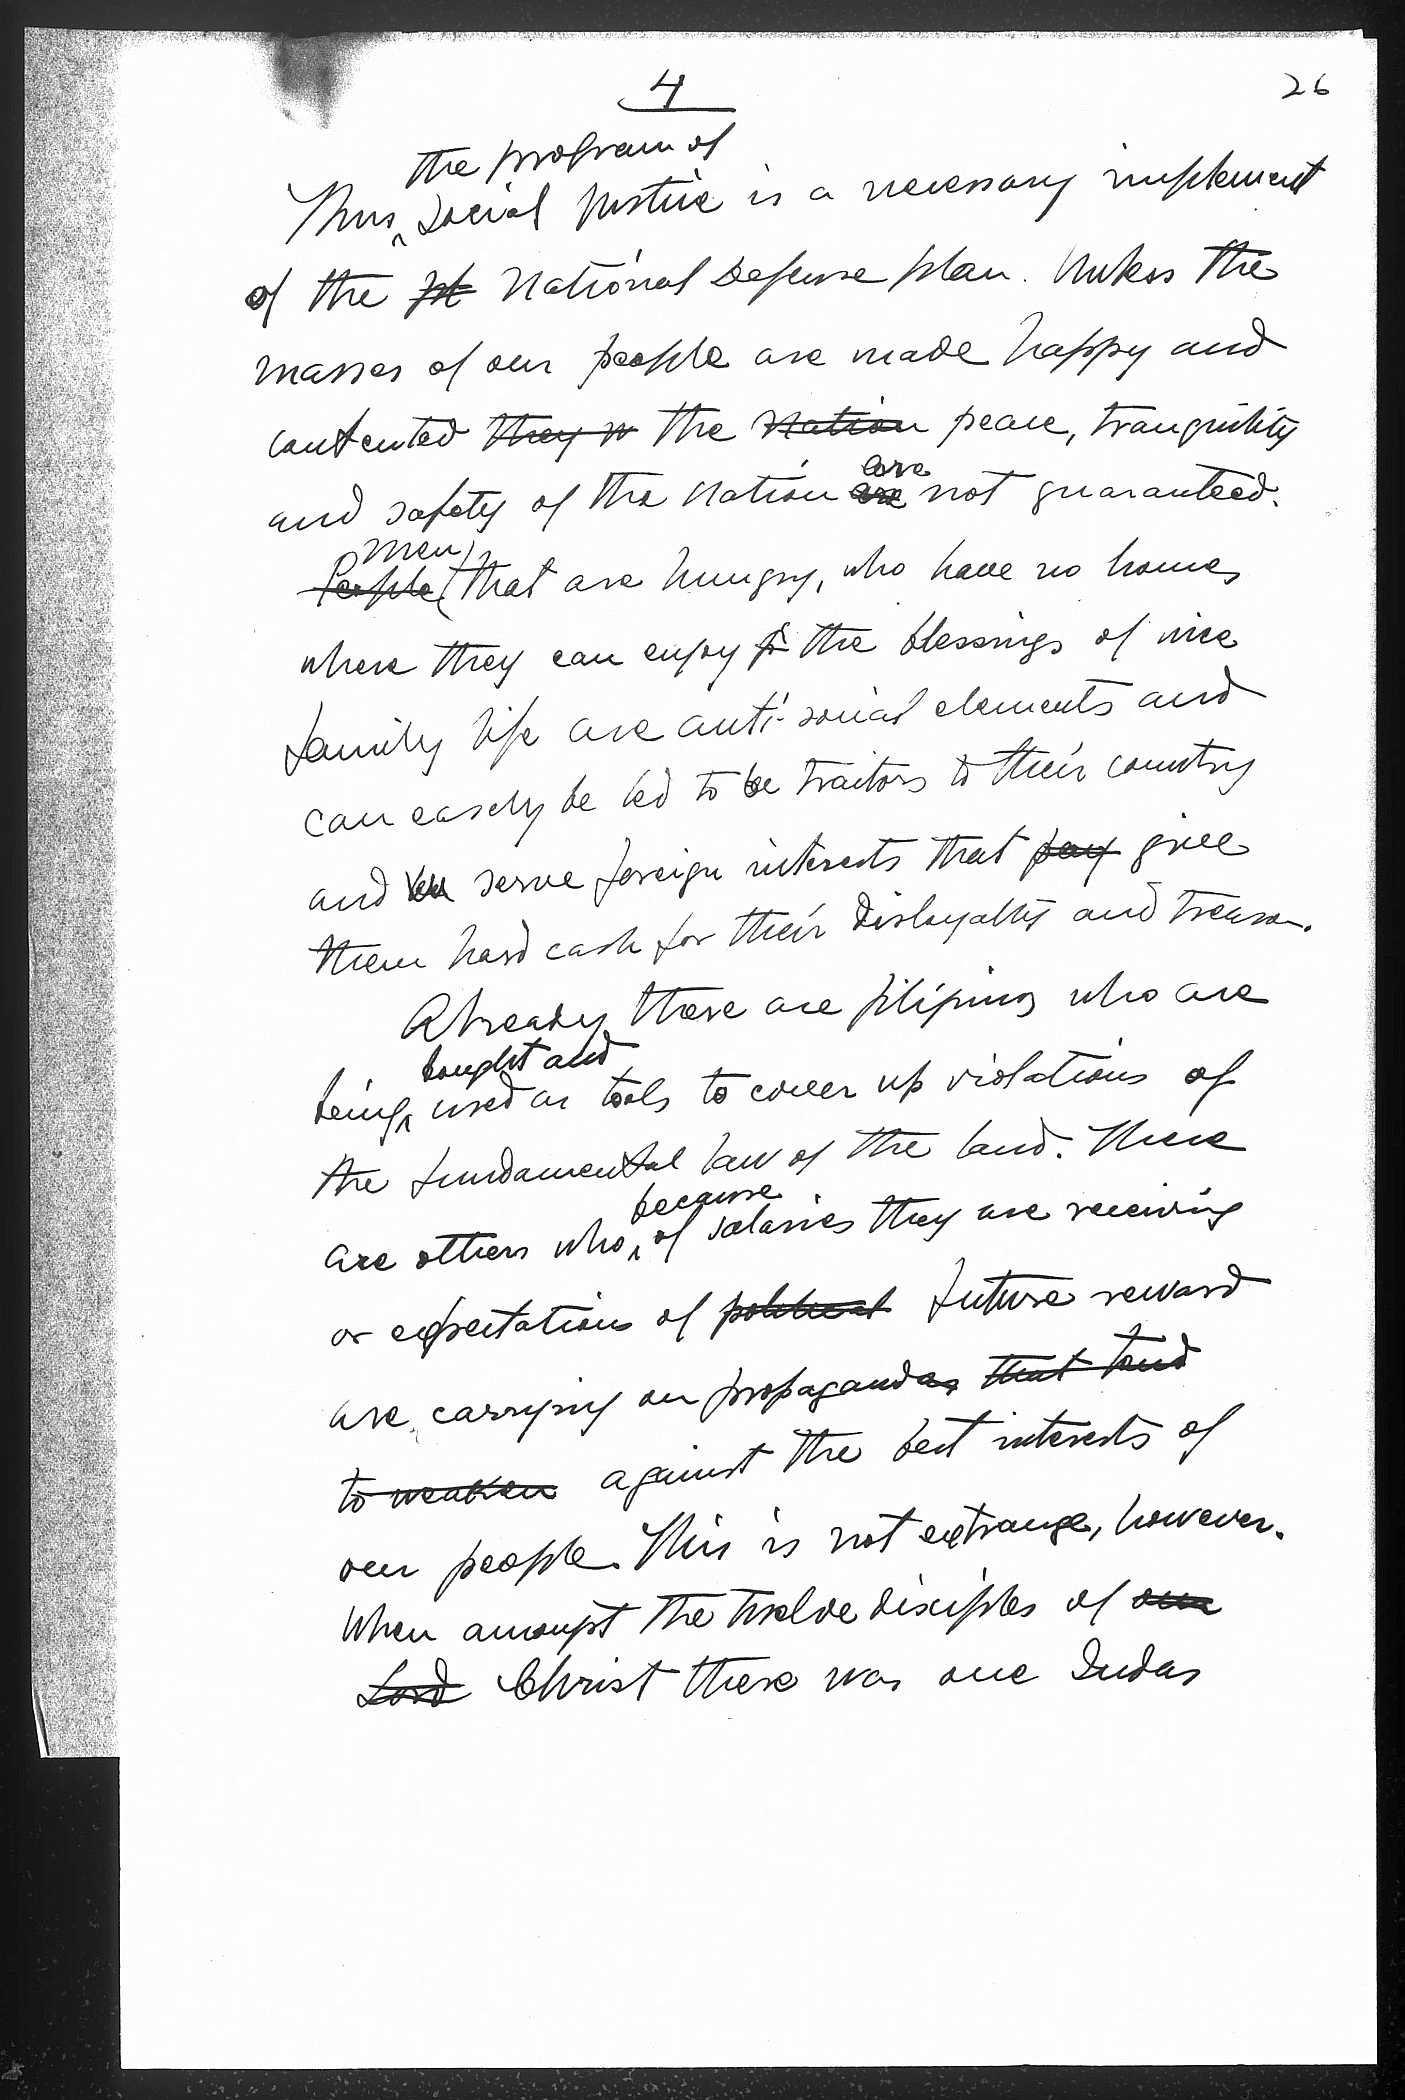 4
26
the program of
Thus social justice is a necessary implement
of the pl National Defense plan. Unless the
masses of our people are made happy and
contented they w the nation peace, tranquility
and safety of the nation are are not guaranteed.
men
People that are hungry, who have no homes
where they can enjoy the blessings of nice
family life are anti-social elements and
can easely be led to be traitors to their country
and serve foreign interests that pay give
them hard cash for their disloyalty and treason.
Already there are filipinos who are
bought and
being used as tools to cover up violations of
the fundamental law of the land. There
because
are others who of salaries they are receiving
or expectations of political future reward
are carrying on propagandas that tend
to weaken against the best interests of
our people. This is not extrange, however.
When amongst the twelve disciples of our
Lord Christ there was one Judas